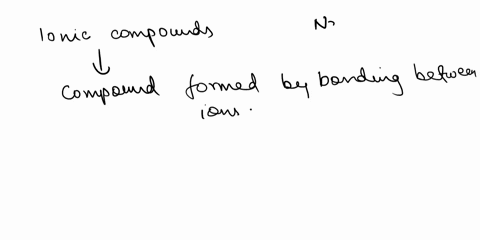 Ionic compounds
compound formed by bonding between
ions.